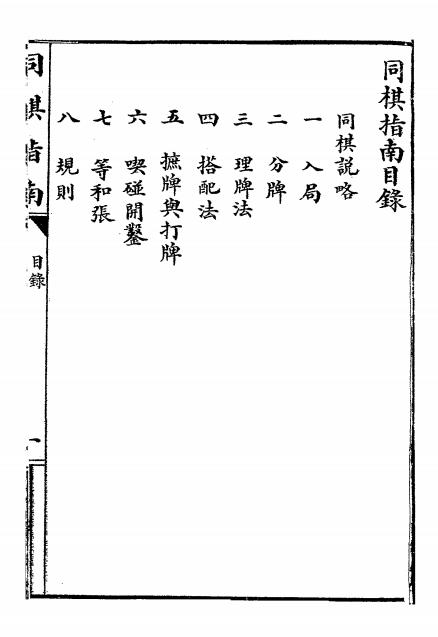 同棋指南目錄
同棋説略
一 入局
二 分牌
三 理牌法
四 搭配法
五 摭牌與打牌
六 喫碰開鑿
七 等和張
八 規則
同棋指南
目錄
一